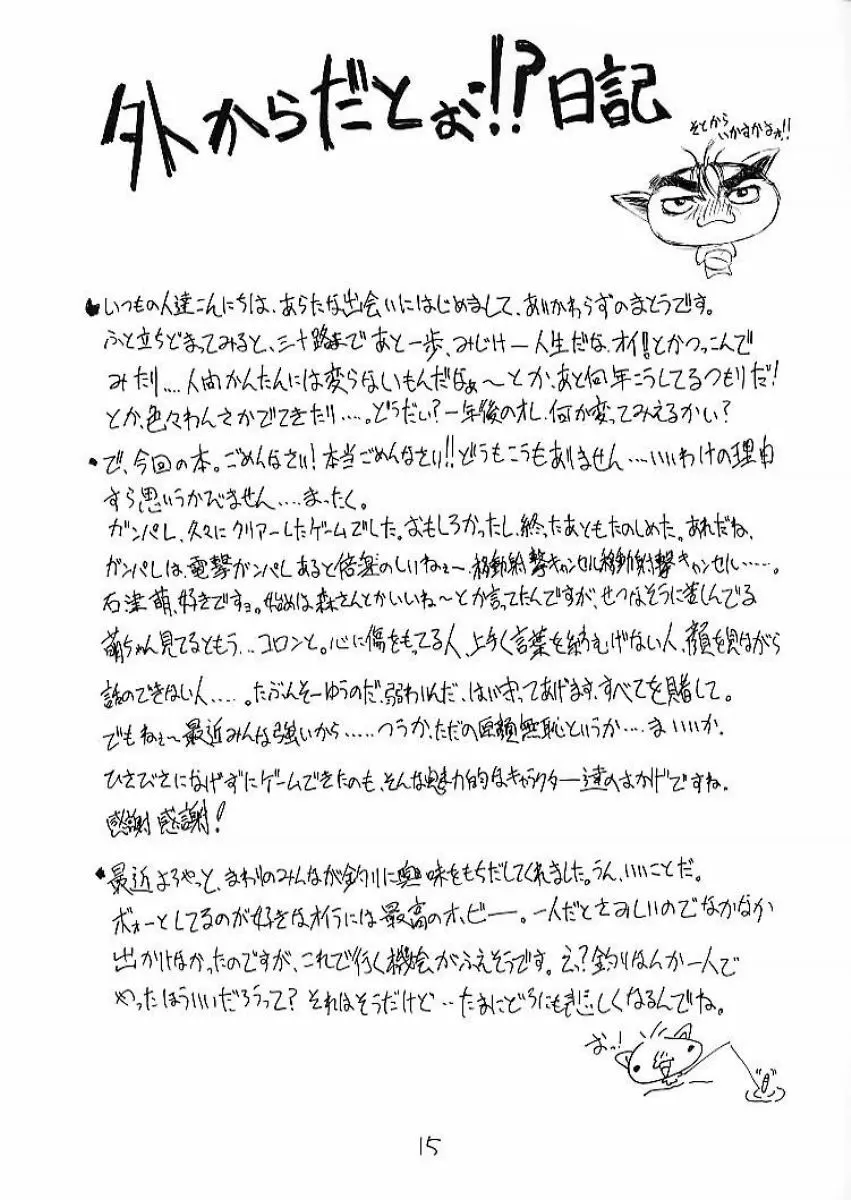 外からだとぉ!!?日記
そとから
いかすかよぉ!!
●いつもの人達こんにちは、あらたな出会いにはじめまして、あいかわらずのまとうです。
ふと立ちどまってみると、三十路まであと一歩、みじけー人生だな、オイ!!とかつっこんで
みたり....人間かんたんには変らないもんだなぁ〜とか、あと何年こうしてるつもりだ!
とか、色々わんさかでてきたり.....。どうだい?一年後のオレ、何か変ってみえるかい?
・で、今回の本。ごめんなさい!本当ごめんなさい!!どうもこうもありません...いいわけの理由
すら思いうかびません....まったく。
ガンパレ、久々にクリアーしたゲームでした。おもしろかったし、終ったあともたのしめた。あれだね、
ガンパレは、電撃ガンパレあると倍楽のしいねぇ〜、移動射撃キャンセル移動射撃キャンセル.....。
石津萌、好きですョ。始めは森さんとかいいね〜とか言ってたんですが、せつなそうに並しんでる
萌ちゃん見てるともう...コロンと。心に傷をもってる人、上手く言葉を紡むげない人、顔を見ながら
話のできない人.....。たぶんそーゆうのだ、弱わいんだ、はい守ってあげます、すべてを賭して。
でもねぇ〜最近みんな強いから.....つうか、ただの厚顔無恥というか....ま いいか、
ひさびさになげずにゲームできたのも、そんな魅力的なキャラクター達のおかげですね。
感謝感謝!
・最近よろやっと、まわりのみんなが釣りに興味をもちだしてくれました。うん、いいことだ。
ボォーとしてるのが好きなオイラには最高のホビー。一人だとさみしいのでなかなか
出かけなかったのですが、これで行く機会がふえそうです。え?釣りなんか一人で
やったほういいだろうって?それはそうだけど..たまにどうにも悲しくなるんでね。
おっ!
15